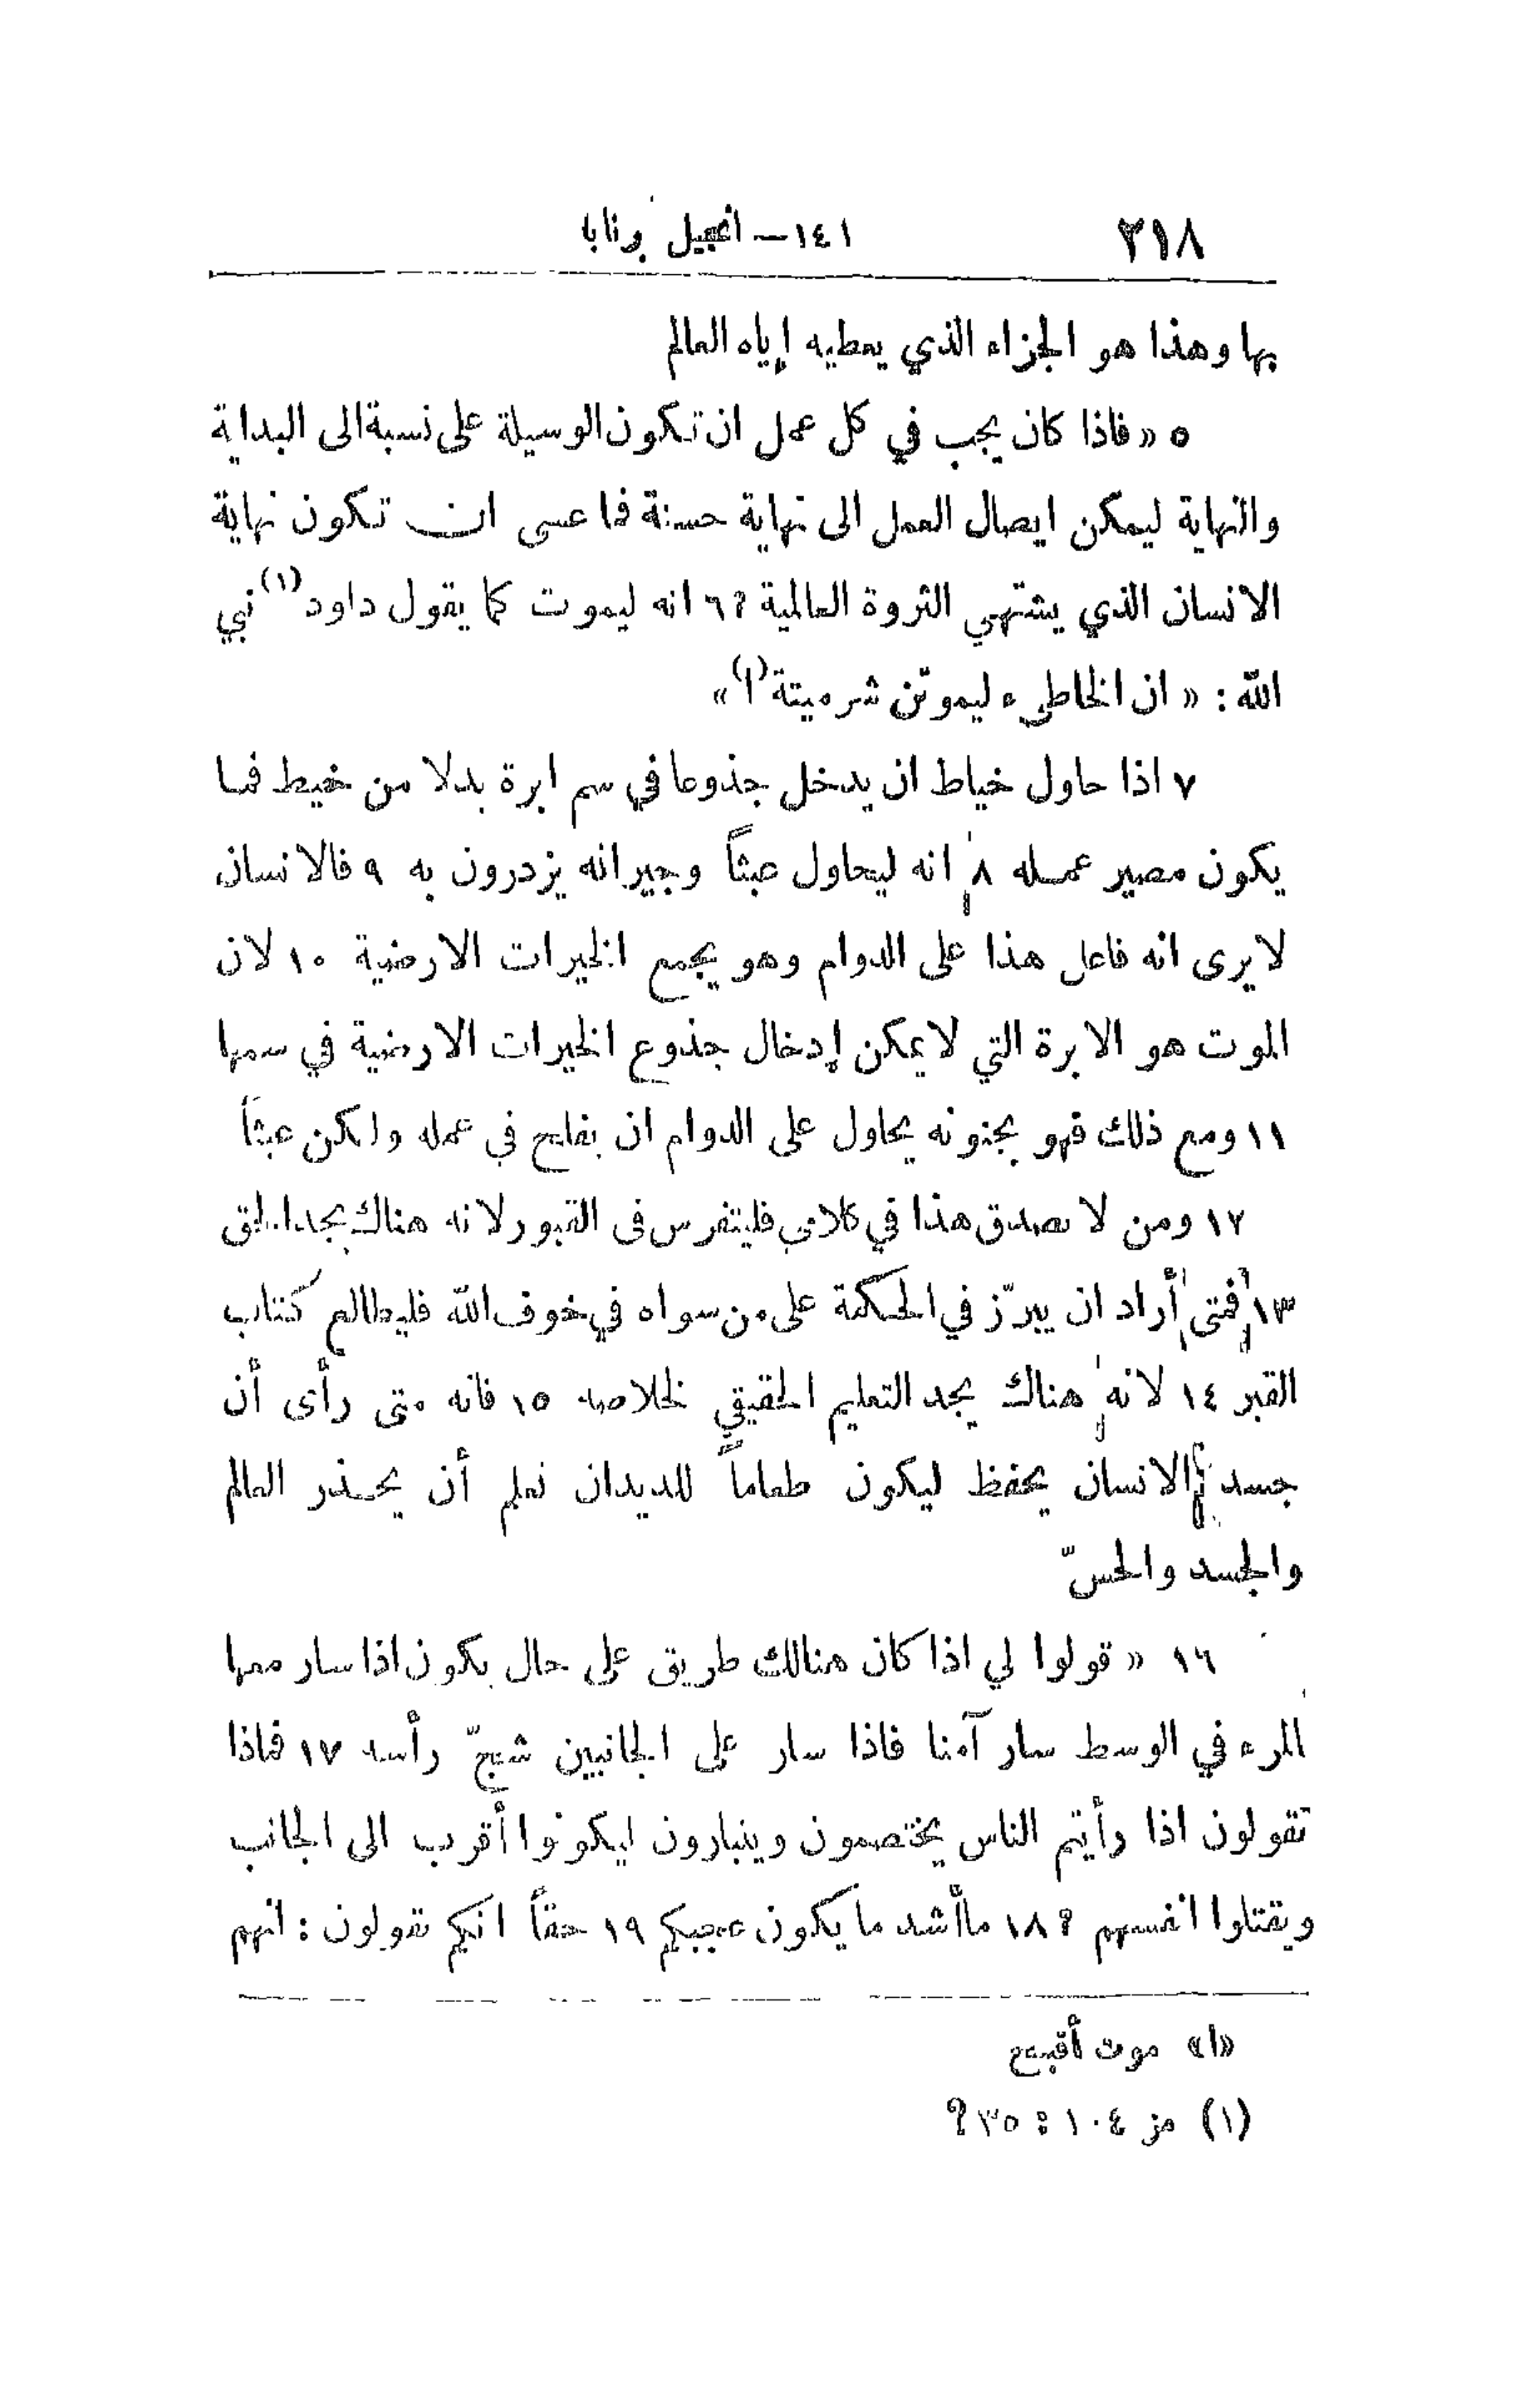 ٢١٨ ١٤١ — انجيل برنابا
بها وهذا هو الجزاء الذي يعطيه إياه العالم
٥ « فاذا كان يجب في كل عمل ان تكون الوسيلة على نسبة الى البداية
والنهاية ليمكن ايصال العمل الى نهاية حسنة فما عسى ان تكون نهاية
الانسان الذي يشتهي الثروة العالمية ؟ ٦ انه ليموت كما يقول داود (١) نبي
الله : « ان الخاطىء ليموتن شر ميتة (ا) »
٧ اذا حاول خياط ان يدخل جذوعا في سم ابرة بدلا من خيط فما
يكون مصير عمله ٨ انه ليحاول عبثاً وجيرانه يزدرون به ٩ فالانسان
لا يرى انه فاعل هذا على الدوام وهو يجمع الخيرات الارضية ١٠ لان
الموت هو الابرة التي لا يمكن إدخال جذوع الخيرات الارضية في سمها
١١ ومع ذلك فهو بجنونه يحاول على الدوام ان يفلح في عمله ولكن عبثاً
١٢ ومن لا يصدق هذا في كلامي فليتفرس في القبور لانه هناك يجد الحق
١٣ فمتى أراد ان يبرّز في الحكمة على من سواه في خوف الله فليطالع كتاب
القبر ١٤ لانه هناك يجد التعليم الحقيقي لخلاصه ١٥ فانه متى رأى أن
جسد الانسان يحفظ ليكون طعاماً للديدان تعلم أن يحذر العالم
والجسد والحسّ
١٦ « قولوا لي اذا كان هنالك طريق على حال يكون اذا سار معها
المرء في الوسط سار آمنا فاذا سار على الجانبين شجّ رأسه ١٧ فماذا
تقولون اذا رأيتم الناس يختصمون ويتبارون ليكونوا أقرب الى الجانب
ويقتلوا انفسهم ؟ ١٨ ما أشد ما يكون عجبكم ١٩ حقاً انكم تقولون : انهم
«ا» موت أقبح
(١) مز ١٠٤ : ٣٥ ؟